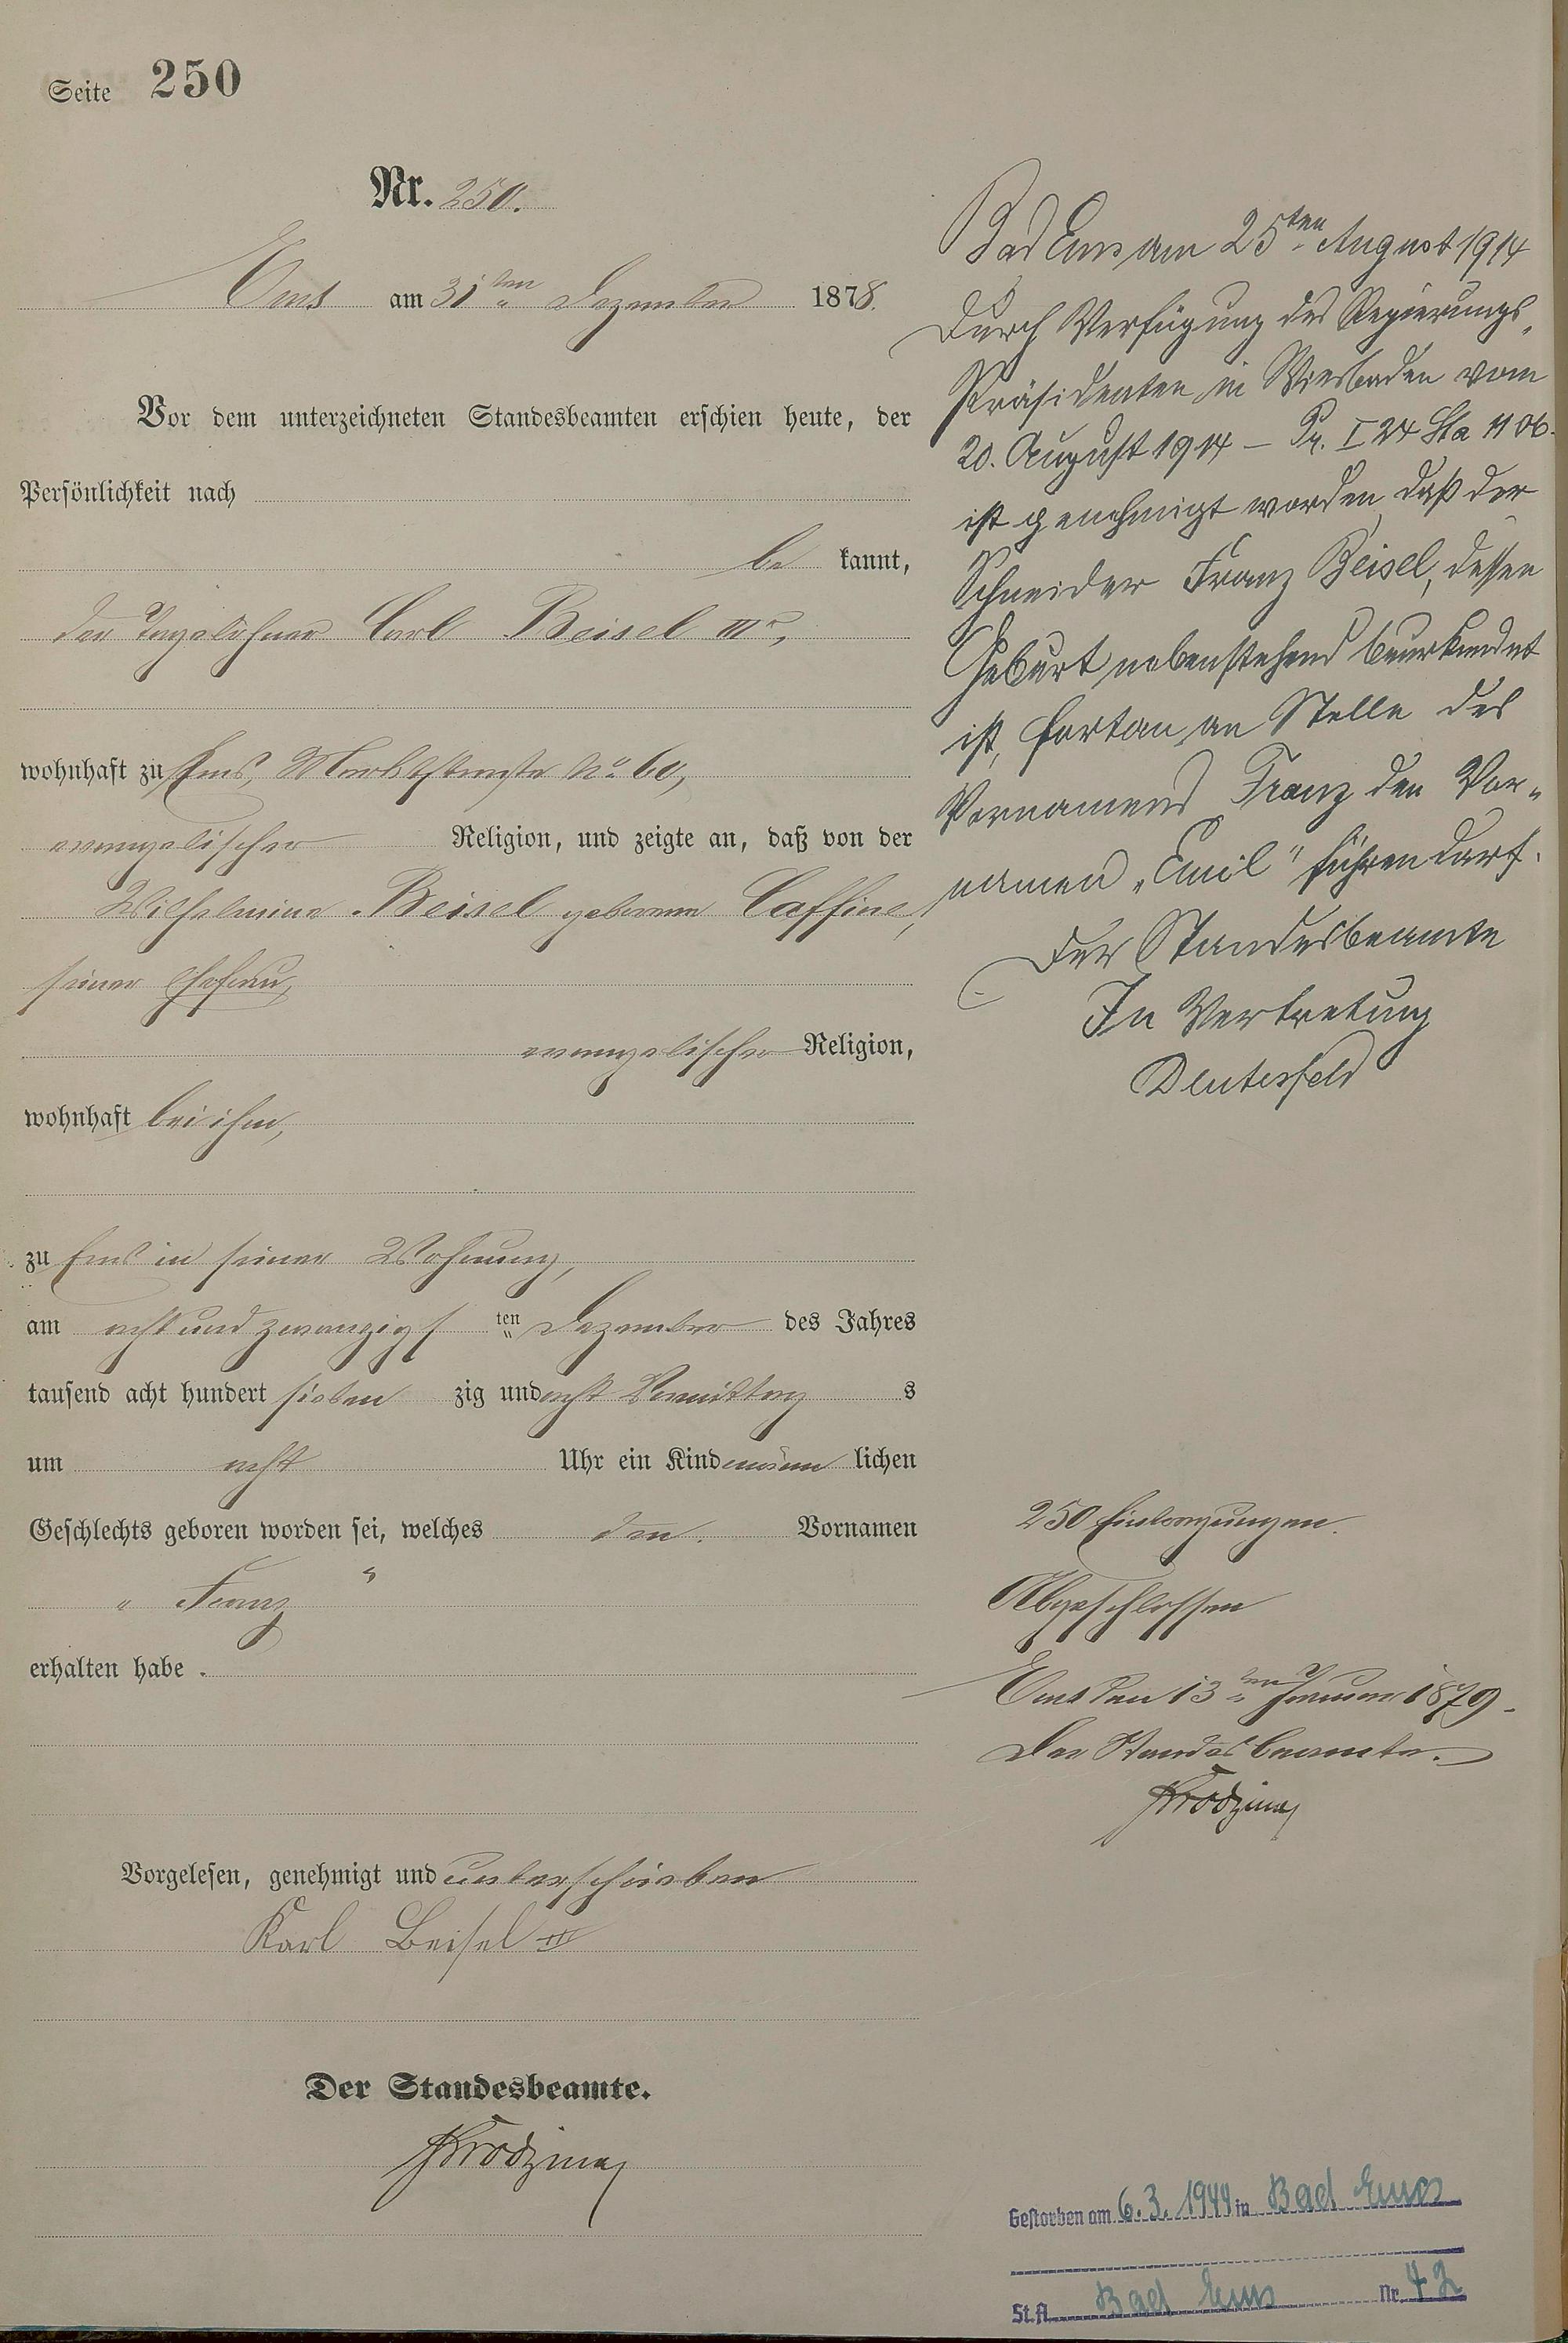 Seite 250
Nr. 250.
Ems am 31ten Dezember 1878.
Vor dem unterzeichneten Standesbeamten erschien heute, der
Persönlichkeit nach
be kannt,
der Tagelöhner Carl Beisel IIIr,
wohnhaft zu Ems, No 60,
evangelischer Religion, und zeigte an, daß von der
Wilhelmine Beisel geborene Caffine,
seiner Ehefrau,
evangelischer Religion,
wohnhaft bei ihm,
zu Ems in seiner Wohnung,
am acht und zwanzigs ten Dezember des Jahres
tausend acht hundert sieben zig und acht Vormittag s
um acht Uhr ein Kind männ lichen
Geschlechts geboren worden sei, welches den Vornamen
„ Franz “
erhalten habe.
Vorgelesen, genehmigt und unterschrieben
Karl Beisel III
Der Standesbeamte.
Bad Ems am 25ten August 1914
Durch Verfügung des Regierungs-
Präsidenten in Wiesbaden vom
20. August 1914 – Pr. I 24 Sta 1106.
ist genehmigt worden, daß der
Schneider Franz Beisel, dessen
Geburt nebenstehend beurkundet
ist, fortan an Stelle des
Vornamens Franz den Vor-
namen „Emil“ führen darf.
Der Standesbeamte
In Vertretung
250 Eintragungen.
Abgeschlossen
Ems den 13ten Januar 1879.
Der Standesbeamte.
Gestorben am 6.3.1944 in Bad Ems
St.A. Bad Ems Nr. 42